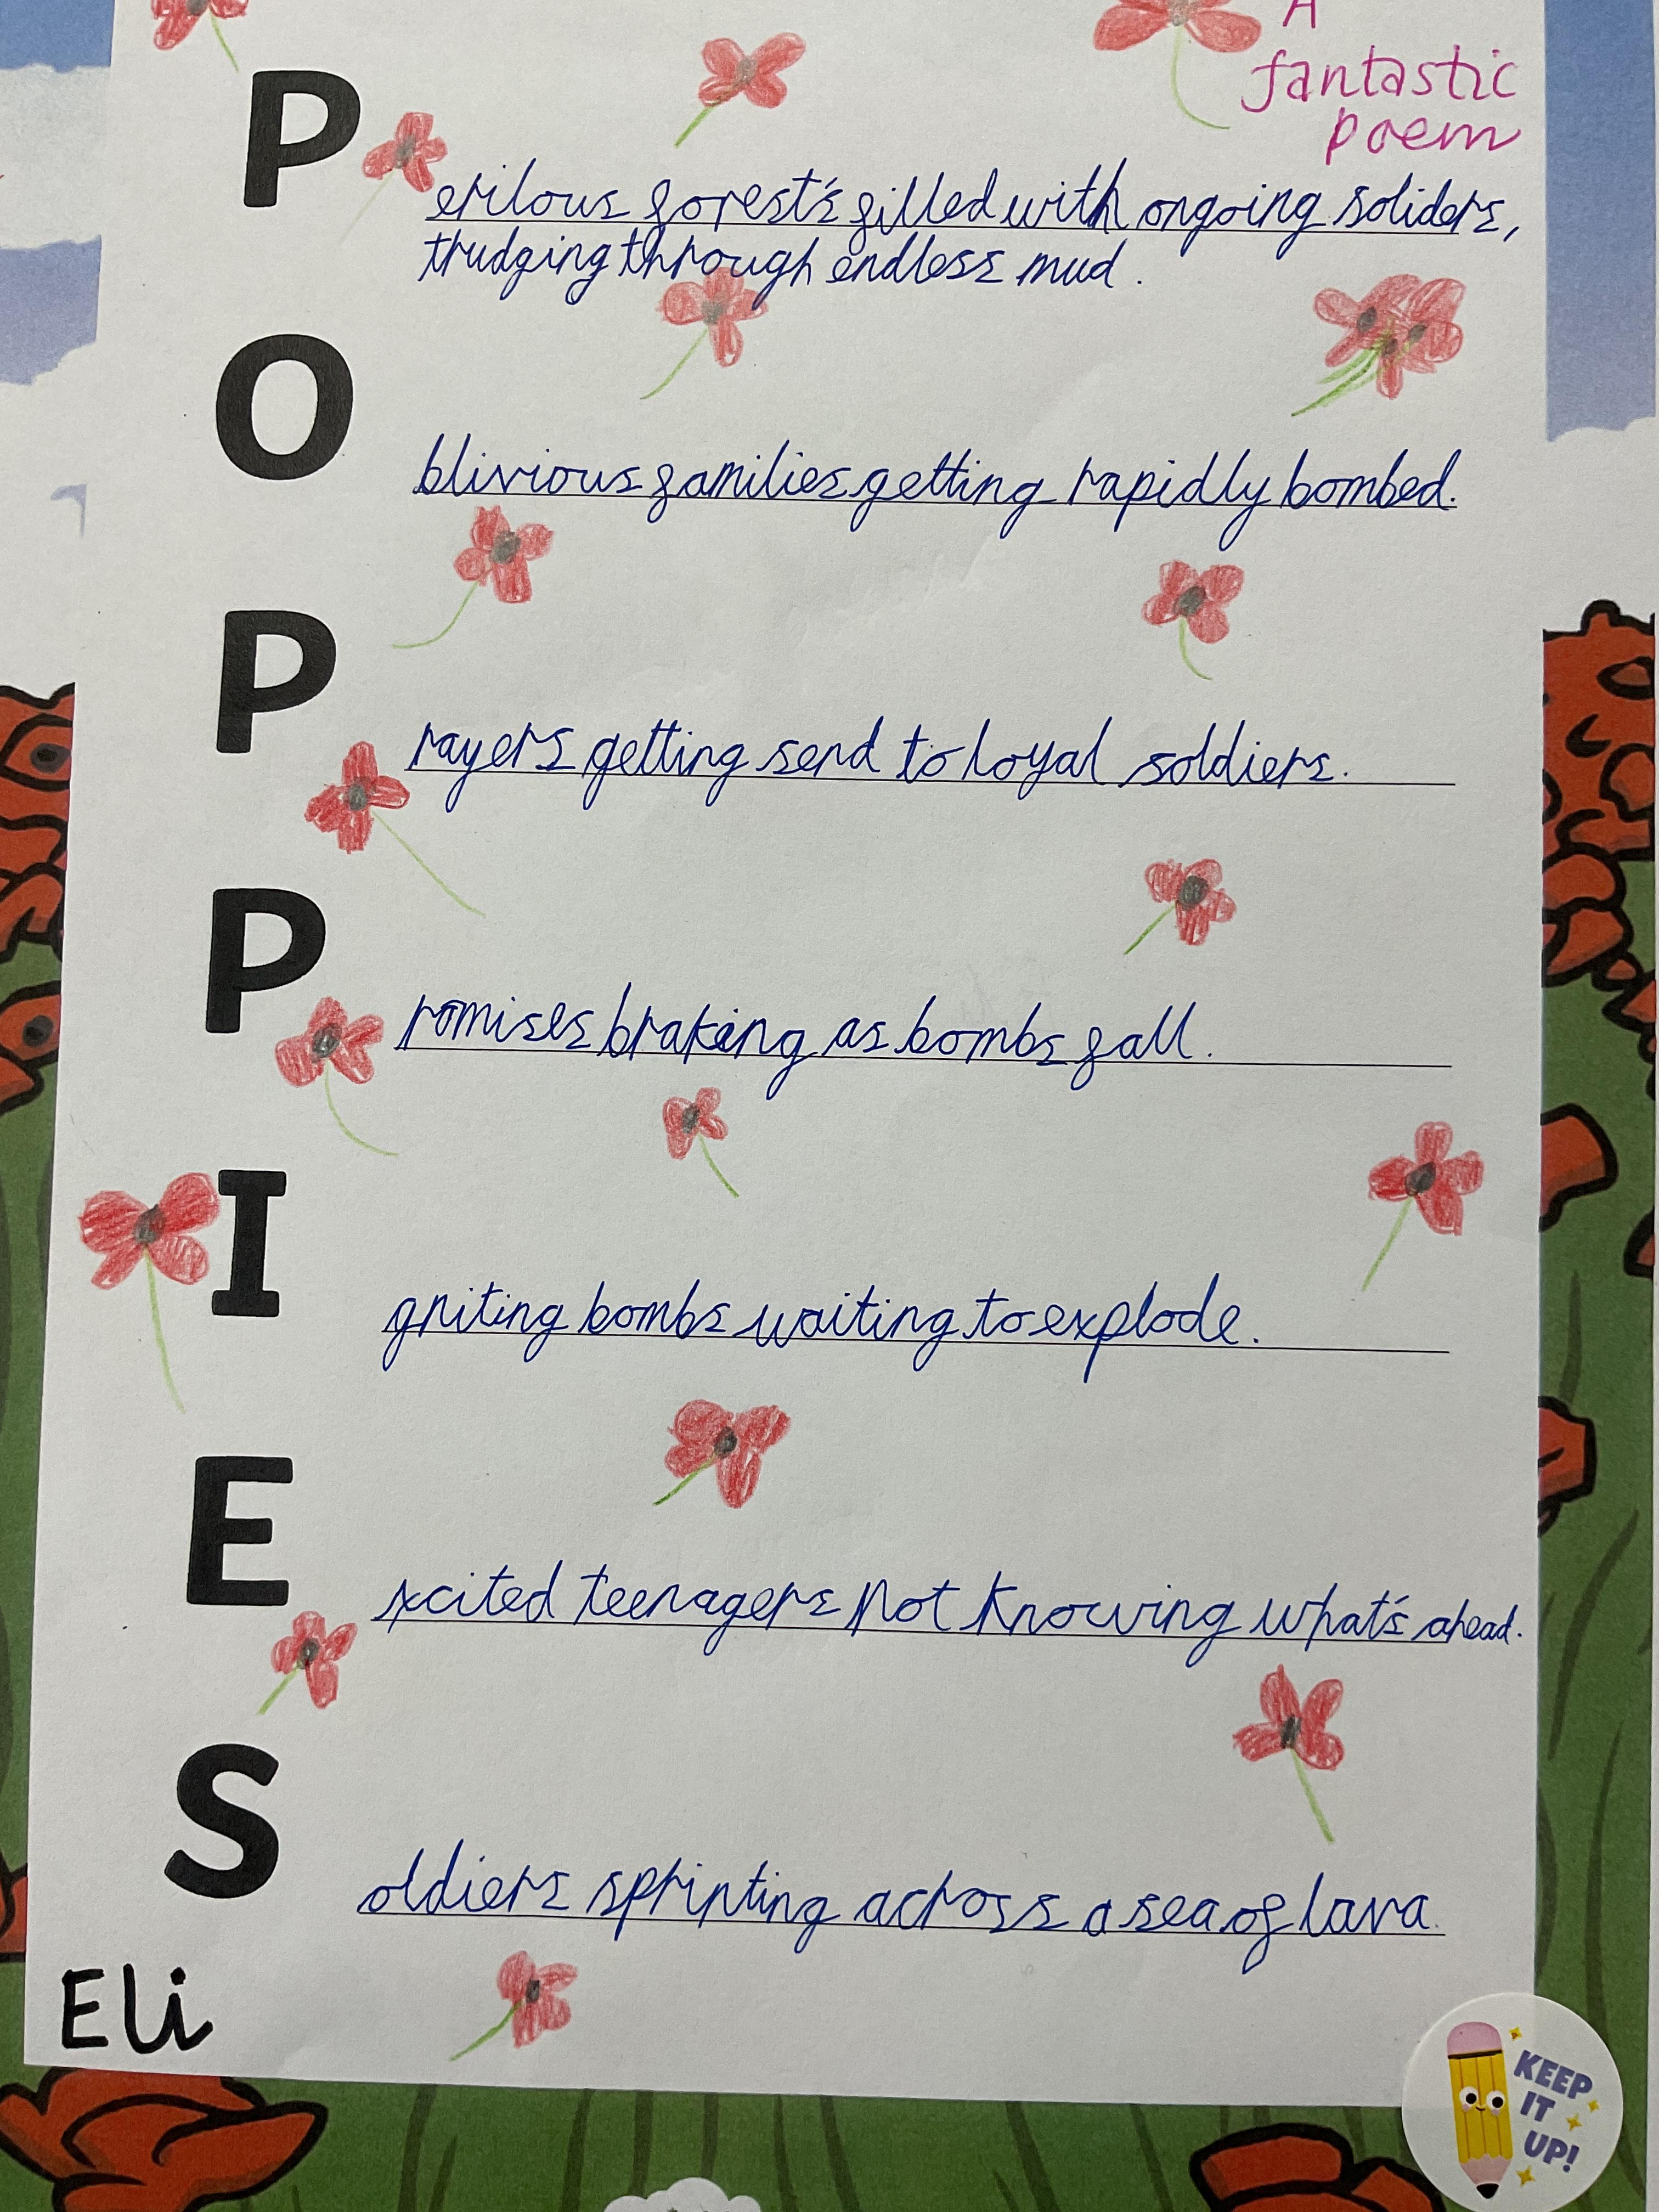 A
fantastic
poem
Perilous forest's filled with ongoing soliders,
trudging through endless mud.
Oblivious families getting rapidly bombed.
Prayers getting send to loyal soldiers.
Promises braking as bombs fall.
Igniting bombs waiting to explode.
Excited teenagers not knowing what's ahead.
Soldiers sprinting across a sea of lava.
Eli
KEEP
IT
UP!